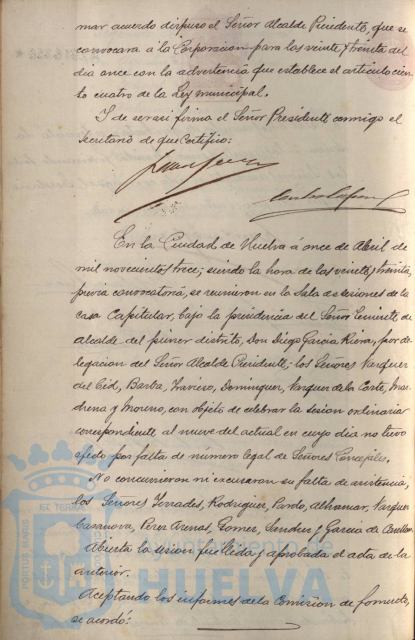 mar acuerdo dispuso el Señor Alcalde Presidente, que se
convocara á la Corporacion para las veinte y treinta del
dia once con la advertencia que establece el articulo cien
to cuatro de la Ley municipal.
Y de ser asi firma el Señor Presidente conmigo el
Secretario de que Certifico:
En la Ciudad de Huelva á once de Abril de
mil novecientos trece; siendo la hora de las veinte y treinta,
previa convocatoria, se reunieron en la Sala de sesiones de la
casa Capitular, bajo la presidencia del Señor Teniente de
alcalde del primer distrito, Don Diego Garcia Riera, por de
legacion del Señor Alcalde Presidente; los Señores Vazquez
del Cid, Barba, Traviso, Dominguez, Vazquez de la Corte, Mar
chena y Moreno, con objeto de celebrar la sesion ordinaria
correspondiente al nueve del actual en cuyo dia no tuvo
efecto por falta de número legal de Señores Concejales.
No concurrieron ni excusaron su falta de asistencia,
los Señores Terrades, Rodriguez, Pardo, Alhamar, Vazquez
Casanova, Perez Arenas, Gomez, Sanchez y Garcia de
Abierta la sesion fué leida y aprobada el acta de la
anterior.
Aceptando los informes de la Comision de fomento,
se acordó:
PORTUS MARIS
ET TERRAE
Ayuntamiento de
HUELVA